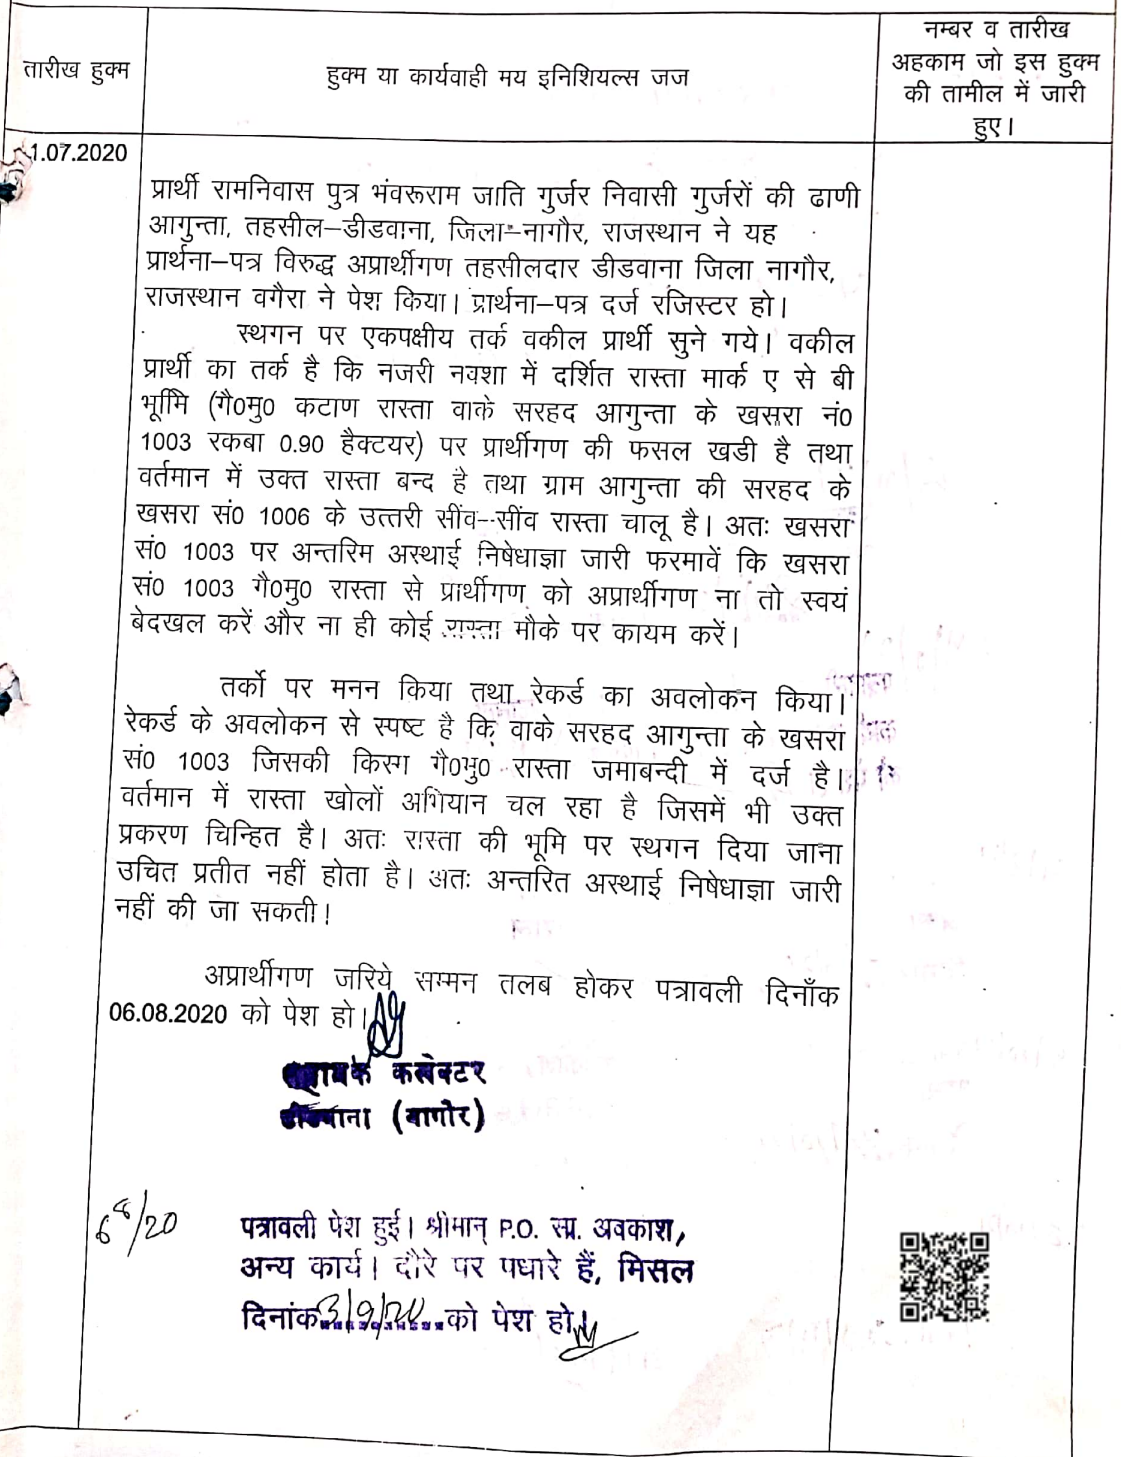 तारीख हुक्म
हुक्म या कार्यवाही मय इनिशियल्स जज
नम्बर व तारीख
अहकाम जो इस हुक्म
की तामील में जारी
हुए।
1.07.2020
प्रार्थी रामनिवास पुत्र भंवरूराम जाति गुर्जर निवासी गुर्जरों की ढाणी
आगुन्ता, तहसील–डीडवाना, जिला–नागौर, राजस्थान ने यह
प्रार्थना–पत्र विरुद्ध अप्रार्थीगण तहसीलदार डीडवाना जिला नागौर,
राजस्थान वगैरा ने पेश किया। प्रार्थना–पत्र दर्ज रजिस्टर हो।
स्थगन पर एकपक्षीय तर्क वकील प्रार्थी सुने गये। वकील
प्रार्थी का तर्क है कि नजरी नक्शा में दर्शित रास्ता मार्क ए से बी
भूमि (गै0मु0 कटाण रास्ता वाके सरहद आगुन्ता के खसरा नं0
1003 रकबा 0.90 हैक्टयर) पर प्रार्थीगण की फसल खडी है तथा
वर्तमान में उक्त रास्ता बन्द है तथा ग्राम आगुन्ता की सरहद के
खसरा सं0 1006 के उत्तरी सींव–सींव रास्ता चालू है। अतः खसरा
सं0 1003 पर अन्तरिम अस्थाई निषेधाज्ञा जारी फरमावें कि खसरा
सं0 1003 गै0मु0 रास्ता से प्रार्थीगण को अप्रार्थीगण ना तो स्वयं
बेदखल करें और ना ही कोई रास्ता मौके पर कायम करें।
तर्को पर मनन किया तथा रेकर्ड का अवलोकन किया।
रेकर्ड के अवलोकन से स्पष्ट है कि वाके सरहद आगुन्ता के खसरा
सं0 1003 जिसकी किस्म गै0मु0 रास्ता जमाबन्दी में दर्ज है।
वर्तमान में रास्ता खोलों अभियान चल रहा है जिसमें भी उक्त
प्रकरण चिन्हित है। अतः रास्ता की भूमि पर स्थगन दिया जाना
उचित प्रतीत नहीं होता है। अतः अन्तरित अस्थाई निषेधाज्ञा जारी
नहीं की जा सकती।
अप्रार्थीगण जरिये सम्मन तलब होकर पत्रावली दिनाँक
06.08.2020 को पेश हो।
सहायक कलेक्टर
डीडवाना (नागौर)
6/8/20
पत्रावली पेश हुई। श्रीमान् P.O. सा. अवकाश,
अन्य कार्य। दौरे पर पधारे हैं, मिसल
दिनांक 3/9/20 को पेश हो।